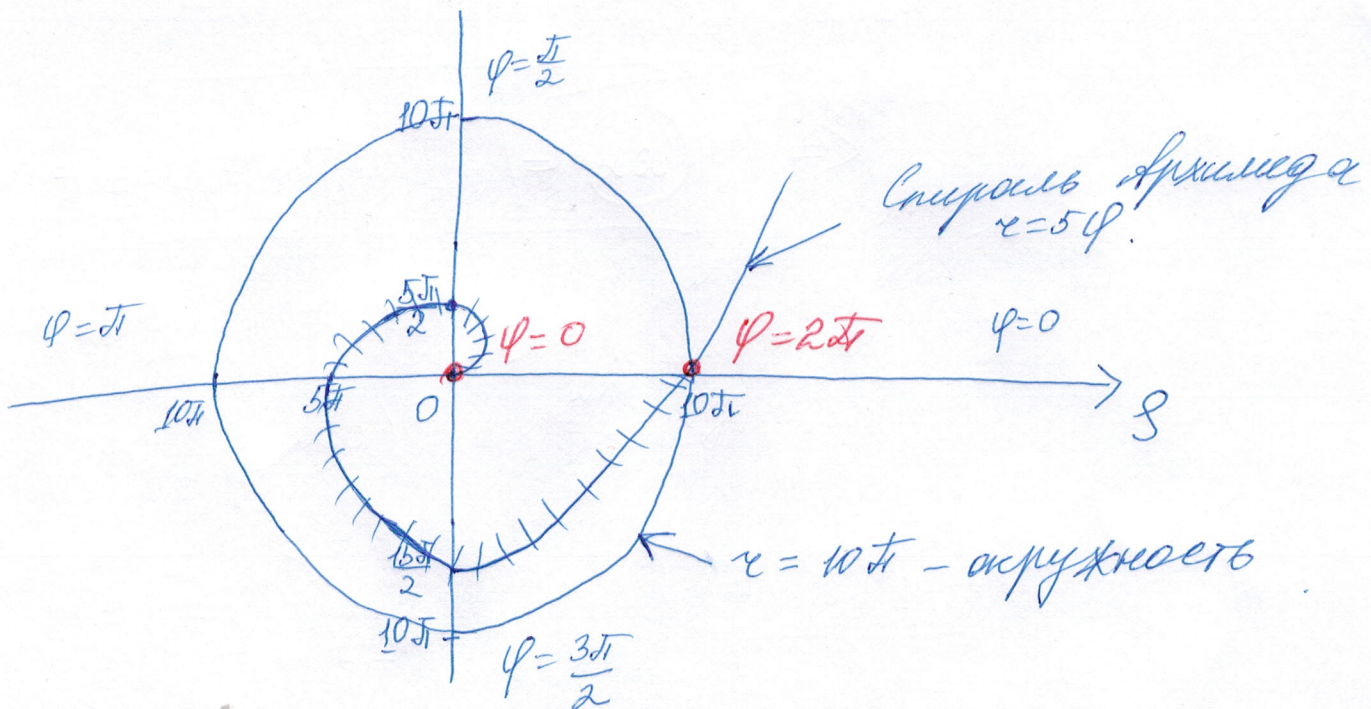 φ=π/2
10π
Спираль Архимеда
r=5φ.
5π/2
φ=π
φ=0
φ=2π
φ=0
10π
5π
0
10π
ρ
15π/2
r = 10π – окружность
10π
φ=3π/2